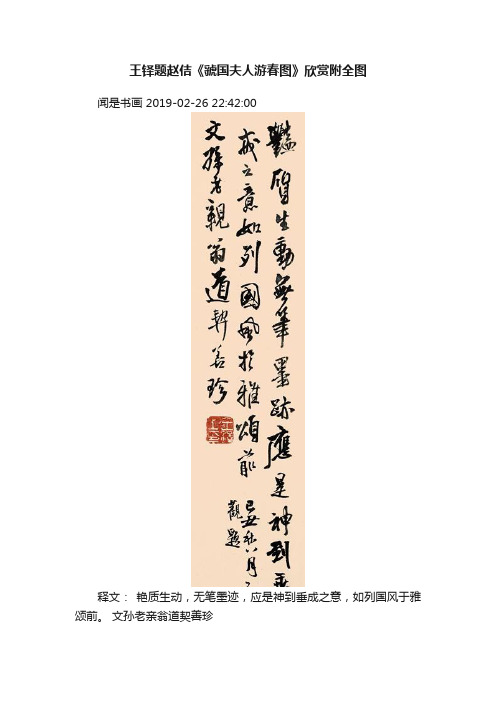 王铎题赵佶《虢国夫人游春图》欣赏附全图
闻是书画 2019-02-26 22:42:00
艷質生動無筆墨跡應是神到垂
戒之意如列國風於雅頌前
己丑秋八月
觀題
文孫老親翁道契善珍
释文： 艳质生动，无笔墨迹，应是神到垂成之意，如列国风于雅
颂前。 文孙老亲翁道契善珍